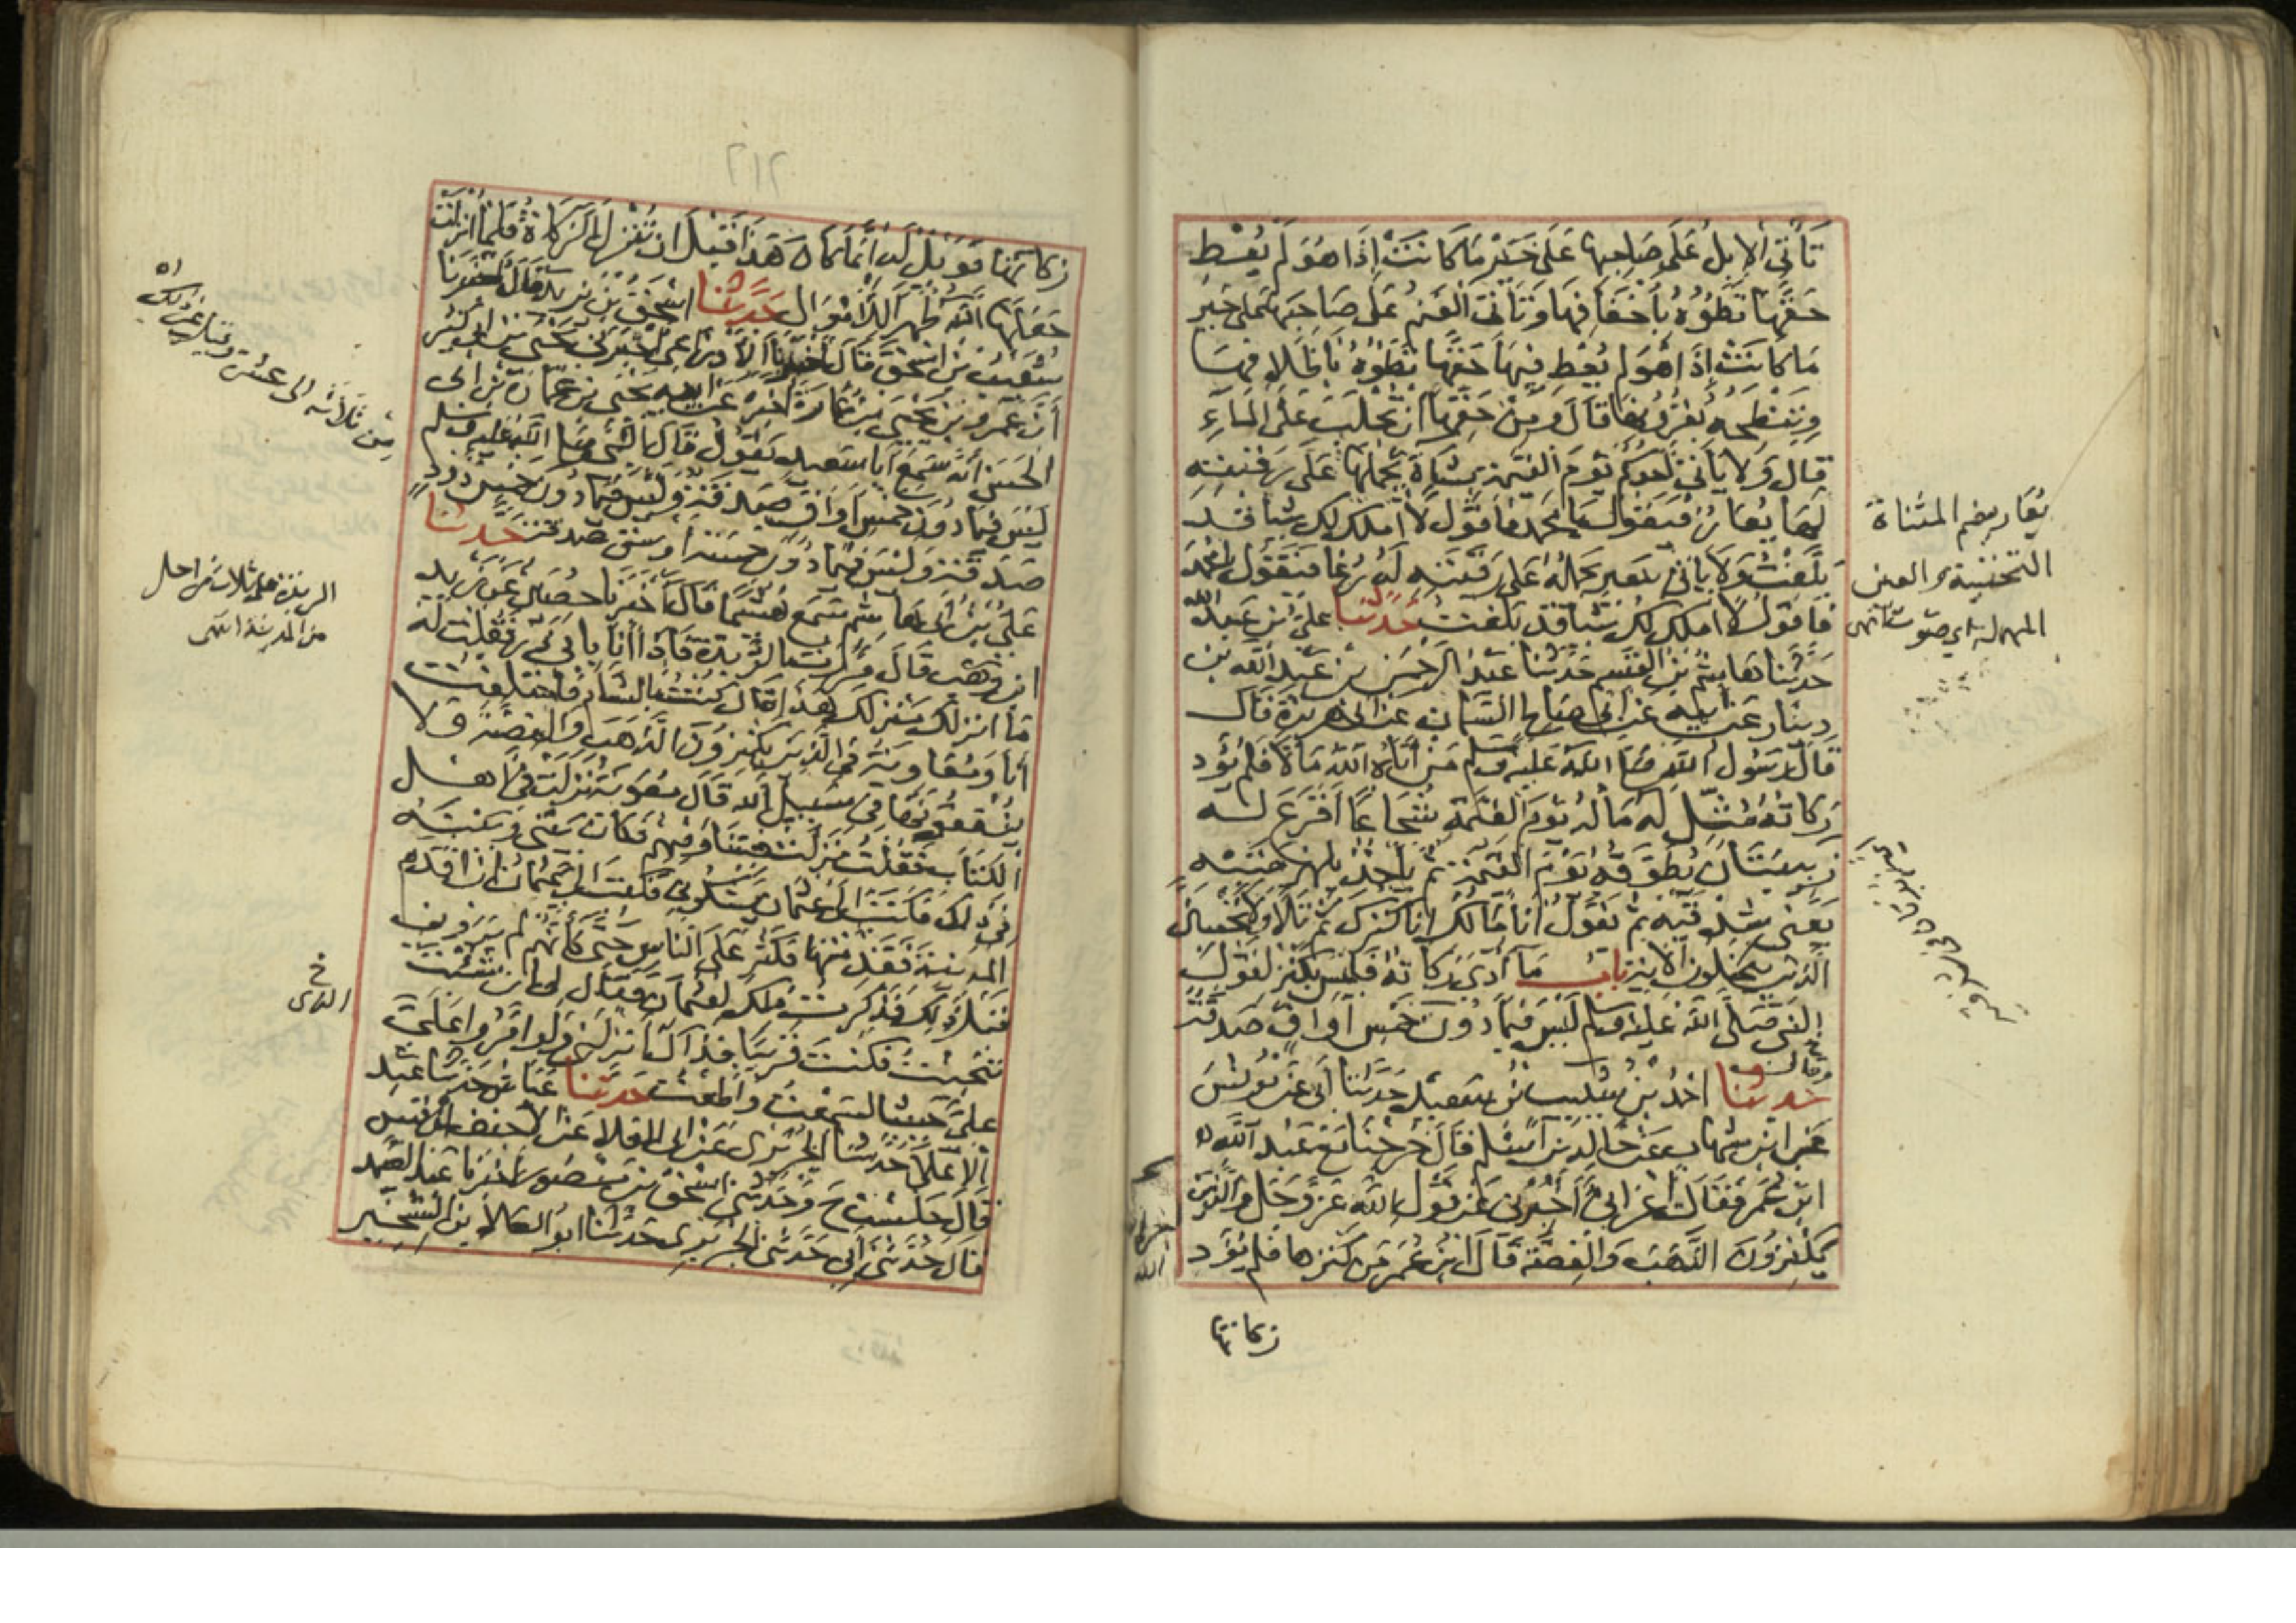 تأتي الإبل على صاحبها على خير ما كانت إذا هو لم يعط
حقها تطؤه بأخفافها وتأتي الغنم على صاحبها على خير
ما كانت إذا هو لم يعط فيها حقها تطؤه بأظلافها
وتنطحه بقرونها قال ومن حقها أن تحلب على الماء
قال ولا يأتي أحدكم يوم القيمة بشاة يحملها على رقبته
لها يعار فيقول يا محمد فأقول لا أملك لك شيئا قد
بلغت ولا يأتي ببعير يحمله على رقبته له رغاء فيقول يا محمد
فأقول لا أملك لك شيئا قد بلغت حدثنا علي بن عبد الله
حدثنا هاشم بن القسم حدثنا عبد الرحمن بن عبد الله بن
دينار عن أبيه عن أبي صالح السمان عن أبي هريرة قال
قال رسول الله صلى الله عليه وسلم من آتاه الله مالا فلم يؤد
زكاته مثل له ماله يوم القيمة شجاعا أقرع له
زبيبتان يطوقه يوم القيمة ثم يأخذ بلهزمتيه
يعني شدقيه ثم يقول أنا مالك أنا كنزك ثم تلا ولا يحسبن
الذين يبخلون الآية باب ما أدي زكاته فليس بكنز لقول
النبي صلى الله عليه وسلم ليس فيما دون خمس أواق صدقة
وقال
حدثنا أحمد بن شبيب بن سعيد حدثنا أبي عن يونس
عن ابن شهاب عن خالد بن أسلم قال خرجنا مع عبد الله
ابن عمر فقال أعرابي أخبرني عن قول الله عز وجل والذين
يكنزون الذهب والفضة قال ابن عمر من كنزها فلم يؤد
زكاتها
يعار بضم المثناة
التحتية والعين
المهملة أي صوت انتهى
٢١٢
زكاتها فويل له إنما كان هذا قبل أن تنزل الزكاة فلما أنزلت
جعلها الله طهرا للأموال حدثنا إسحق بن يزيد قال أخبرنا
شعيب بن إسحق قال أخبرنا الأوزاعي أخبرني يحيى بن أبي كثير
أن عمرو بن يحيى بن عمارة أخبره عن أبيه يحيى بن عمارة بن أبي
الحسن أنه سمع أبا سعيد يقول قال النبي صلى الله عليه وسلم
ليس فيما دون خمس أواق صدقة وليس فيما دون خمس ذود
صدقة وليس فيما دون خمسة أوسق صدقة حدثنا
علي بن أبي هاشم سمع هشيما قال أخبرنا حصين عن زيد
ابن وهب قال مررت بالربذة فإذا أنا بأبي ذر فقلت له
ما أنزلك منزلك هذا قال كنت بالشأم فاختلفت
أنا ومعاوية في الذين يكنزون الذهب والفضة ولا
ينفقونها في سبيل الله قال معوية نزلت في أهل
الكتاب فقلت نزلت فينا وفيهم فكان بيني وبينه
في ذلك فكتب إلى عثمان يشكوني فكتب إلي عثمان أن اقدم
المدينة فقدمتها فكثر علي الناس حتى كأنهم لم يروني
قبل ذلك فذكرت ذلك لعثمان فقال لي إن شئت
تنحيت فكنت قريبا فذاك أنزلني ولو أمروا علي
علي حبشيا لسمعت وأطعت حدثنا عياش حدثنا عبد
الأعلى حدثنا الجريري عن أبي العلاء عن الأحنف بن قيس
قال جلست ح وحدثني إسحق بن منصور أخبرنا عبد الصمد
قال حدثني أبي حدثني الجريري حدثنا أبو العلاء بن الشخير
من ثلاثة إلى عشرة وقيل غير ذلك اه
الربذة على ثلاث مراحل
من المدينة انتهى